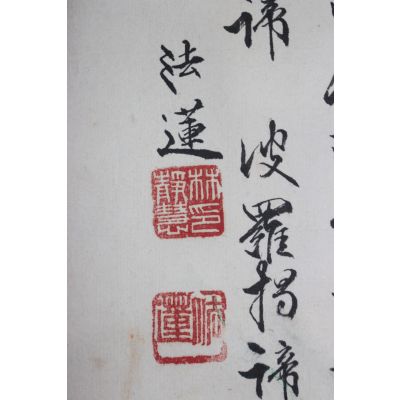 諦 波羅揭諦
法蓮
林靜慧印
法蓮